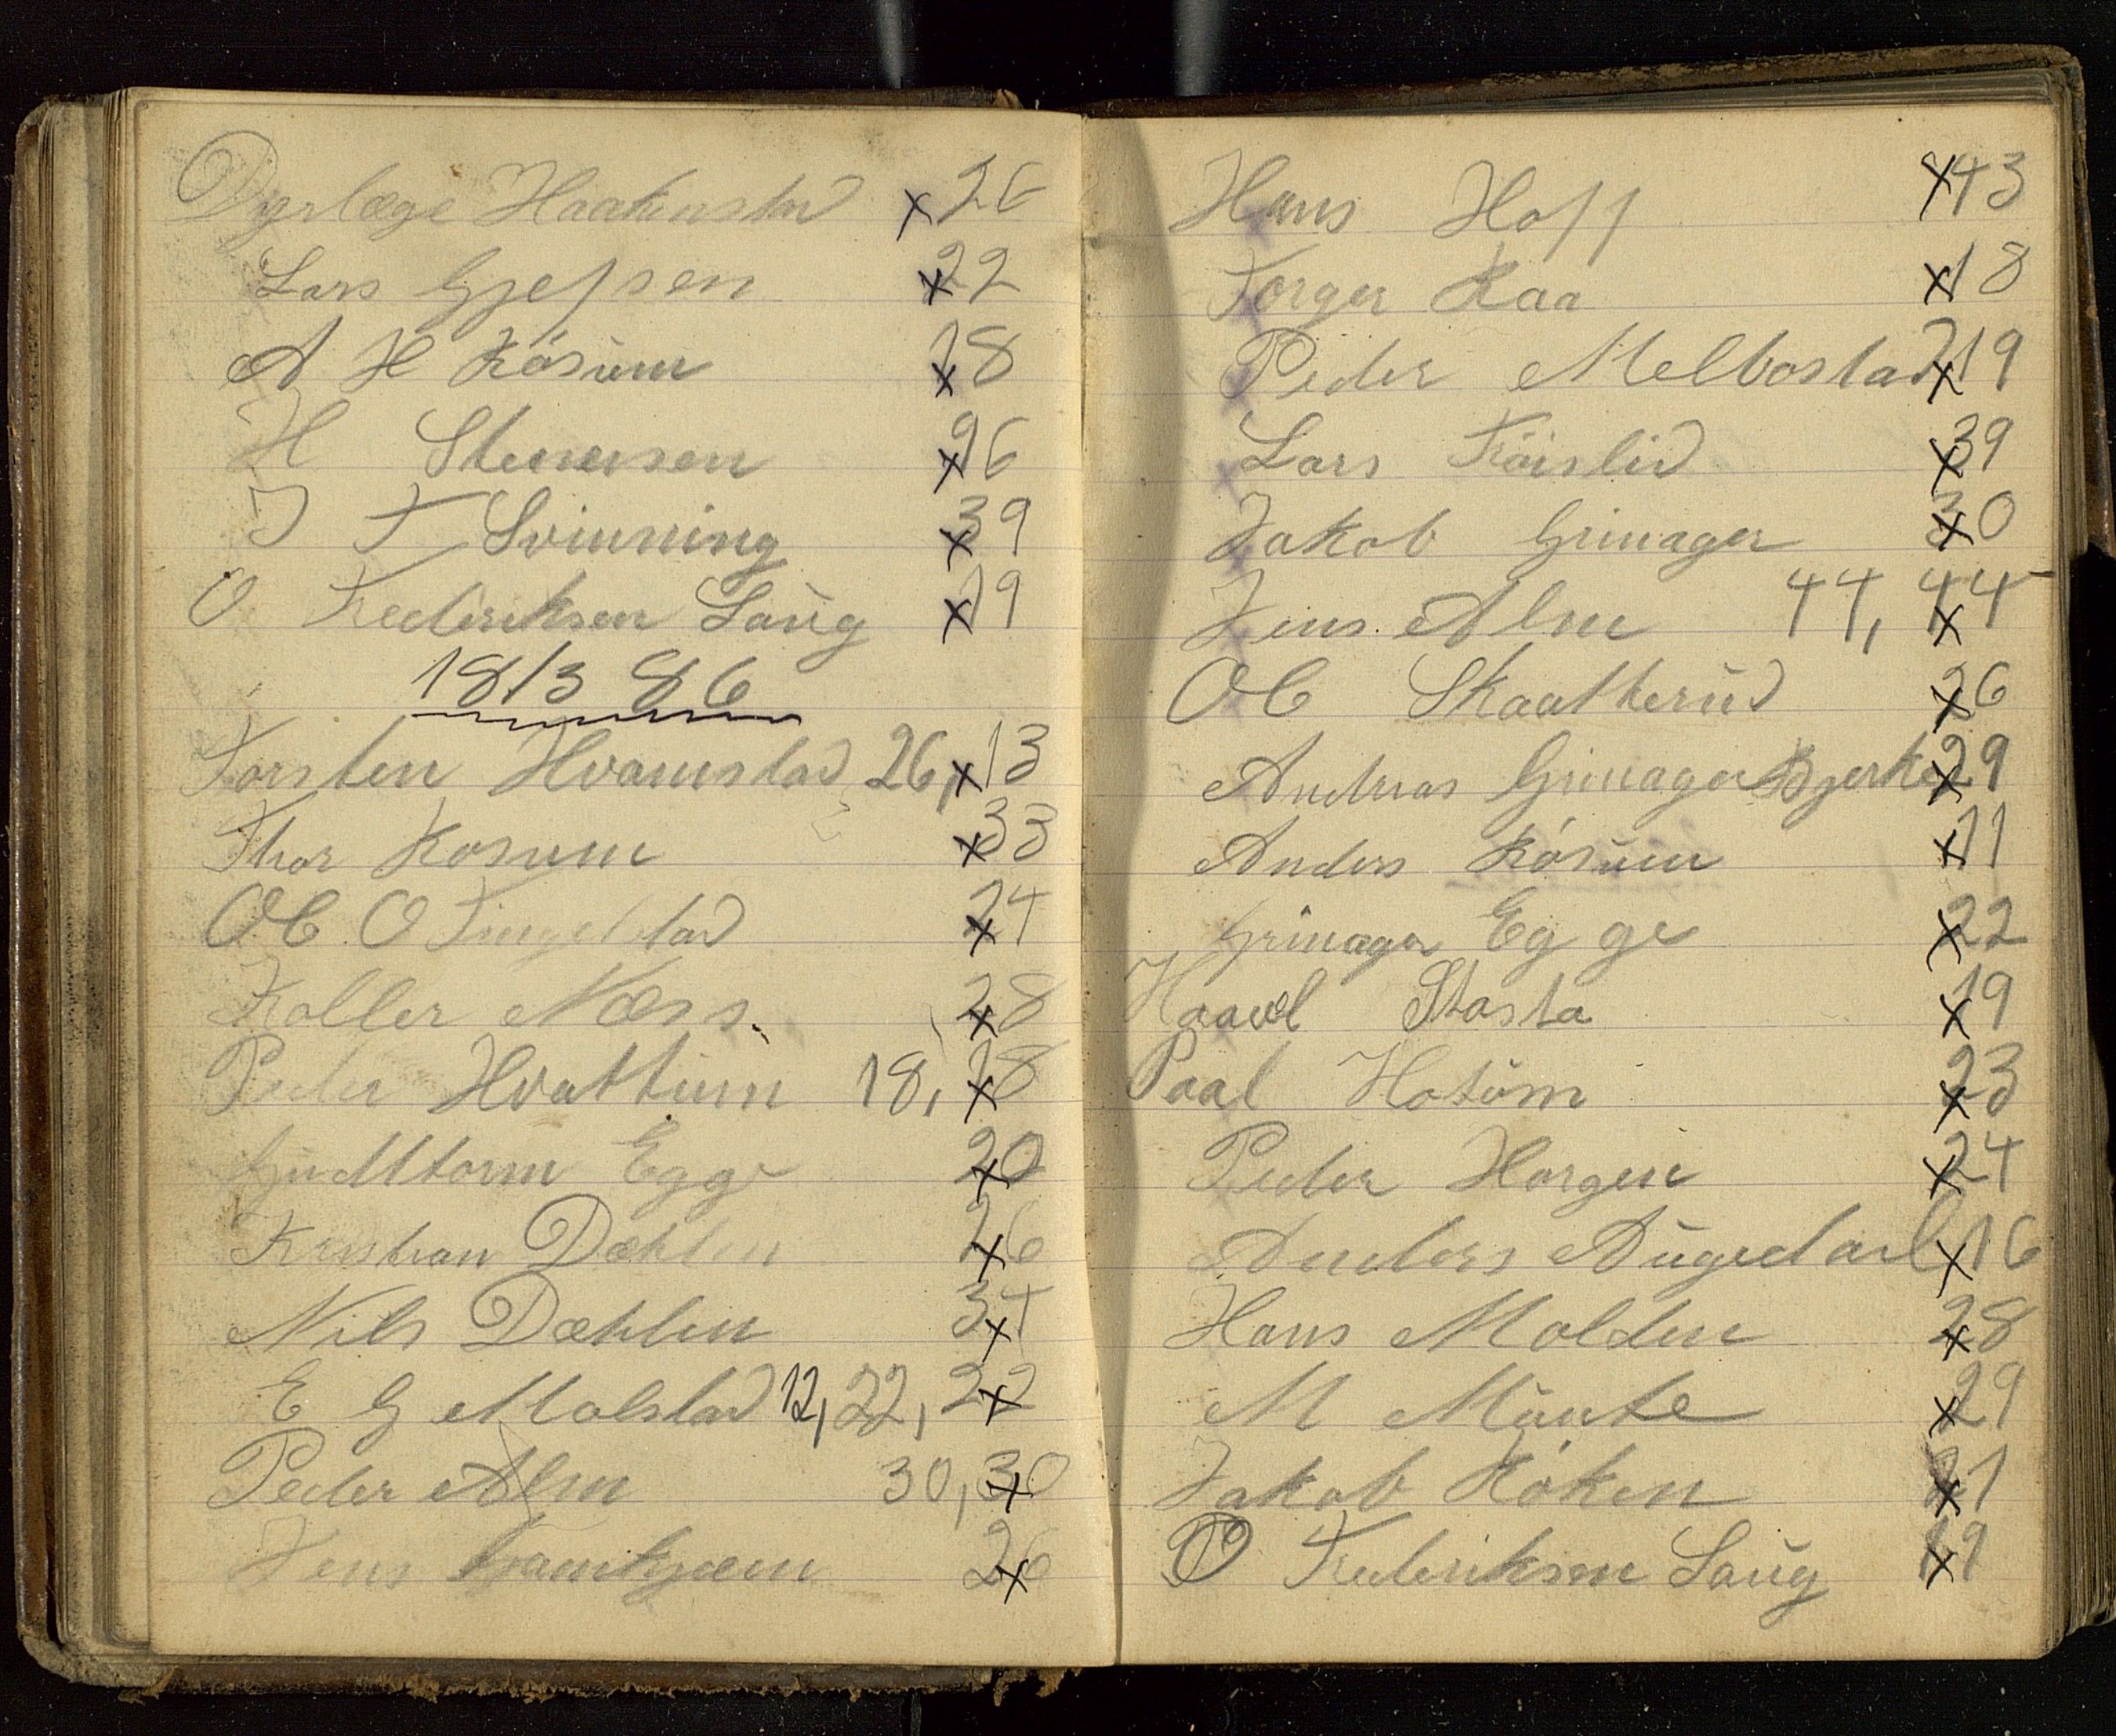 Dyrlæge Haakenstad x 26
Lars Gjefsen x 22
A H Kósum x 18
H Stenersen x 96
J T Svinning x 39
O Frederiksen Saug x 19
18/3 86
Torsten Hvamstad 26, x 13
Thor Kosum x 33
O C O Tingelstad x 24
Koller Næss x 28
Peder Hvattum 18, x 18
Gudttorm Egge x 20
Kristian Dæhlen x 26
Nils Dæhlen x 34
E G Molstad 12, 22, x 22
Peder Alm 30, x 30
Jens x 26
Hans Hoff x 43
Torger Kaa x 18
Peder Melbostad x 19
Lars Fröislid x 39
Jakob Grinager x 30
Jens Alm 44, x 44
O C Skaatterud x 26
Andreas Grinager Bjerke x 29
Anders Kósum x 11
Grinager Egge x 22
Haavel Stasta x 19
Paal Hotöm x 23
Peder Horgen x 24
Anders Augedal x 16
Hans Molden x 28
M Münte x 29
Jakob Kóken x 21
O Frederiksen Saug x 19